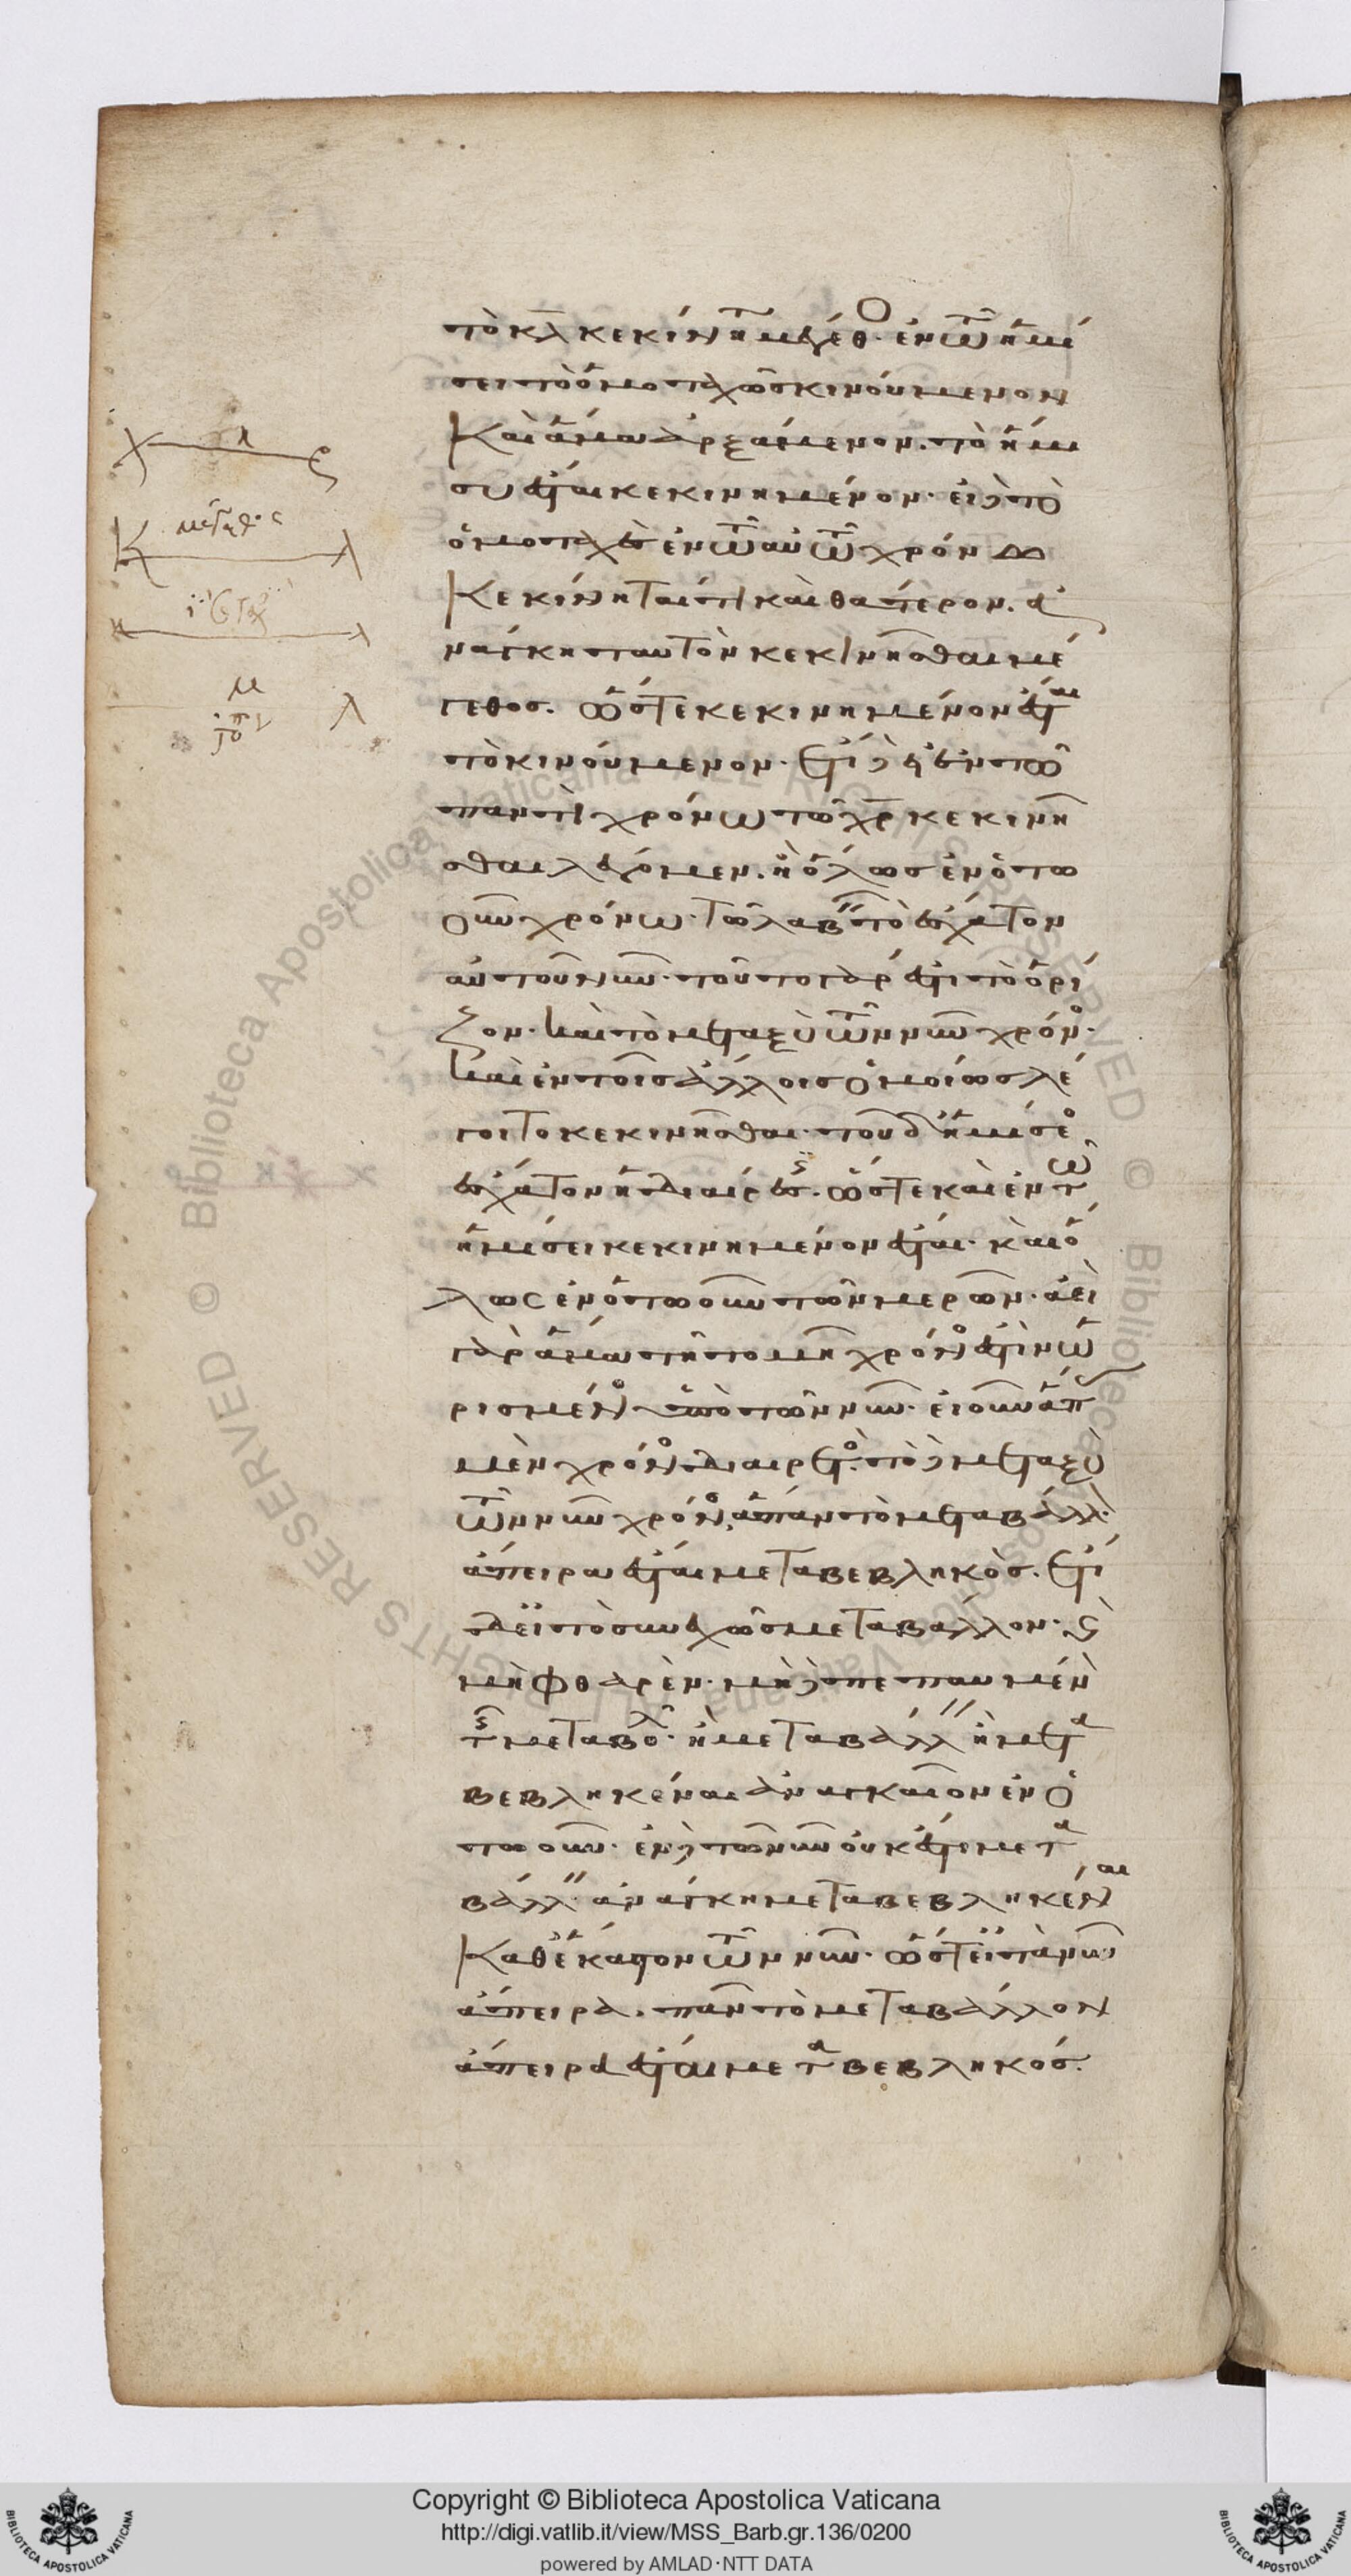 τὸ κλ κεκίνηται μέγεθος· ἐν τῷ ἡμί
σει τὸ ὁμοταχῶς κινούμενον
καὶ ἅμα ἀρξάμενον. τὸ ἥμι
συ ἔσται κεκινημένον· εἰ δὲ τὸ
ὁμοταχὲς ἐν τῷ αὐτῷ χρόνω
κεκίνηταί τι καὶ θάτερον. ἀ
νάγκη ταυτὸν κεκινῆσθαι μέ
γεθος. ὥστε κεκινημένον ἔσται
τὸ κινούμενον. ἔτι δὲ εἰ ἐν τῶ
παντὶ χρόνω τῶ χρ κεκινῆ
σθαι λέγομεν. ἢ ὅλως ἐν ὁτω
οῦν χρόνω. τῶ λαβεῖν τὸ ἔσχατον
αὐτοῦ νῦν· τοῦτο γάρ ἐστι τὸ ὁρί
ζον. καὶ τὸ μεταξὺ τῶν νῦν χρόνος.
καὶ ἐν τοῖς ἄλλοις ὁμοίως λέ
γοιτο κεκινῆσθαι. τοῦ δ' ἡμίσεος
ἔσχατον ἡ διαίρεσις. ὥστε καὶ ἐν τῶ
ἡμίσει κεκινημένον ἔσται. καὶ ὅ
λως ἐν ὁτωοῦν τῶν μερῶν. ἀεὶ
γὰρ ἅμα τῆ τομῆ χρόνος ἐστὶν ὡ
ρισμένος ὑπὸ τῶν νῦν. εἰ οὖν ἅπας
μὲν χρόνος διαιρετός. τὸ δὲ μεταξὺ
τῶν νῦν χρόνος, ἅπαν τὸ μεταβάλλον
ἄπειρα ἔσται μεταβεβληκός. ἔτι
δ' εἰ τὸ συνεχῶς μεταβάλλον. καὶ
μὴ φθαρὲν. μὴ δὲ πεπαυμένον
τῆς μεταβολῆς. ἢ μεταβάλλειν ἢ μετα
βεβληκέναι ἀναγκαῖον ἐν ὁ
τωοῦν. ἐν δὲ τῶ νῦν οὐκ ἔστι μετα
βάλλειν. ἀνάγκη μεταβεβληκέναι
καθ' ἕκαστον τῶν νῦν. ὥστ' εἰ τὰ νῦν
ἄπειρα. πᾶν τὸ μεταβάλλον
ἄπειρα ἔσται μεταβεβληκός.
Copyright © Biblioteca Apostolica Vaticana
http://digi.vatlib.it/view/MSS_Barb.gr.136/0200
powered by AMLAD·NTT DATA